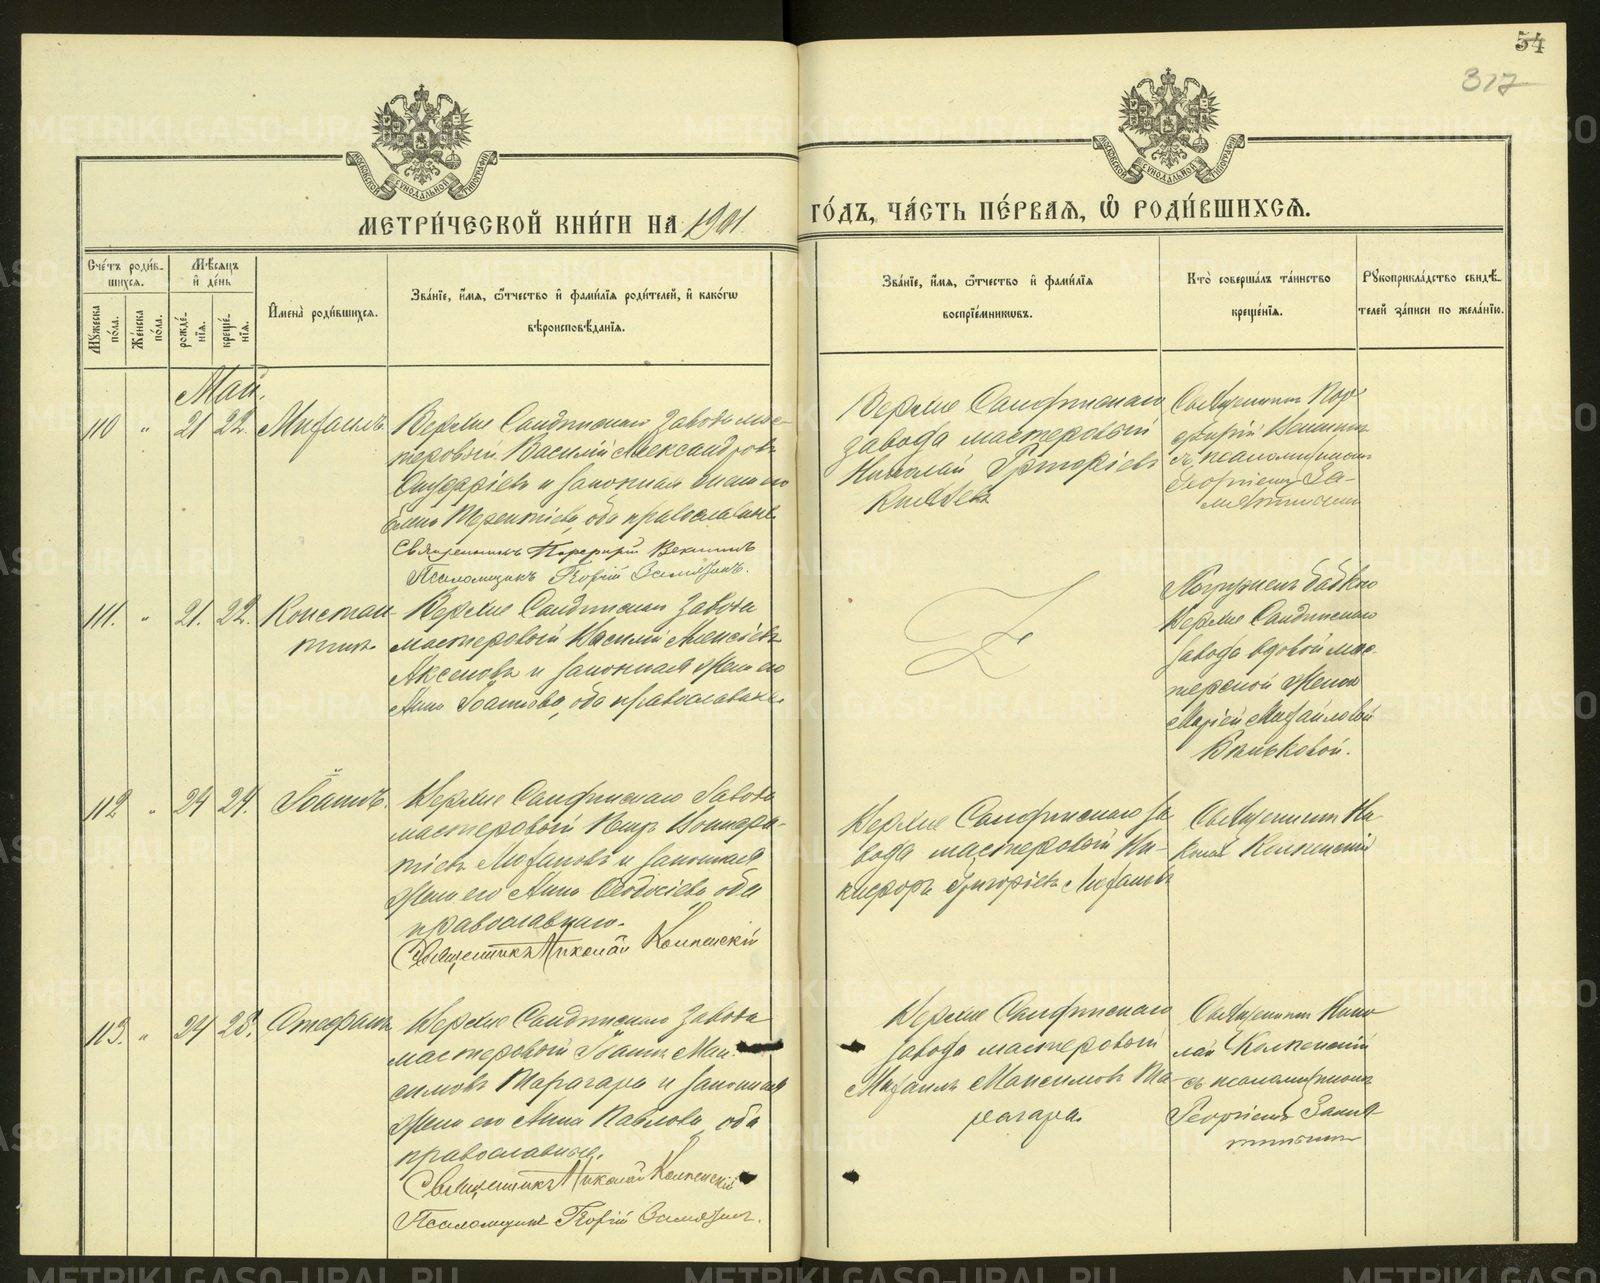 54
317
МЕТРИ́ЧЕСКОЙ КНИ́ГИ НА 1901
ГО́ДЪ, ЧА́СТЬ ПЕ́РВАЯ, Ѡ҆ РОДИ́ВШИХСЯ.
Сче́тъ роди́в-
шихся.
Мꙋ́жеска по́ла.
Же́нска по́ла.
Мѣ́сяцъ
и҆ де́нь
рожде́-
нїя.
креще́-
нїя.
И҆мена̀ роди́вшихся.
Зва́нїе, и҆́мя, ѻ҆́тчество и҆ фами́лїя роди́телей, и҆ како́гѡ
вѣроисповѣ́данїя.
Зва́нїе, и҆́мя, ѻ҆́тчество и҆ фами́лїя
воспрїе́мниковъ.
Кто̀ соверша́лъ та́инство
креще́нїя.
Рꙋкоприкла́дство свидѣ́-
телей за́писи по жела́нїю.
Май.
110 " 21 22. Михаилъ.
Верхне Салдинскаго завода мас-
теровый Василий Александровъ
и законная жена его
Терентіева, оба православные
Священникъ Порфирій
Псаломщикъ Георгій Замятинъ.
Верхне Салдинскаго
завода мастеровый
Николай Григоріевъ
Князевъ
Священникъ Пор-
фирій
съ псаломщикомъ
Георгіемъ За-
мятинымъ
111. " 21. 22. Констан-
тинъ.
Верхне Салдинскаго завода
мастеровый Василий Алексіевъ
Аксеновъ и законная жена его
Анна Іоаннова, оба православные.
Погруженъ бабкою
Верхне Салдинскаго
завода вдовой мас-
терской женой
Маріей Михайловой
112 " 24 24. Іоаннъ.
Верхне Салдинскаго завода
мастеровый Петръ
и законная
жена его Анна Ѳеодосіева, оба
православные.
Священникъ Николай
Верхне Салдинскаго за-
вода мастеровый Ни-
кифоръ Григоріевъ
Священникъ Ни-
колай
113. " 24 28. Стефанъ.
Верхне Салдинскаго завода
мастеровый Іоаннъ Мак-
симовъ и законная
жена его Анна Павлова, оба
православные.
Священникъ Николай
Псаломщикъ Георгій Замятинъ.
Верхне Салдинскаго
завода мастеровый
Михаилъ Максимовъ
Священникъ Нико-
лай
съ псаломщикомъ
Георгіемъ Замя-
тинымъ
METRIKI.GASO-URAL.RU